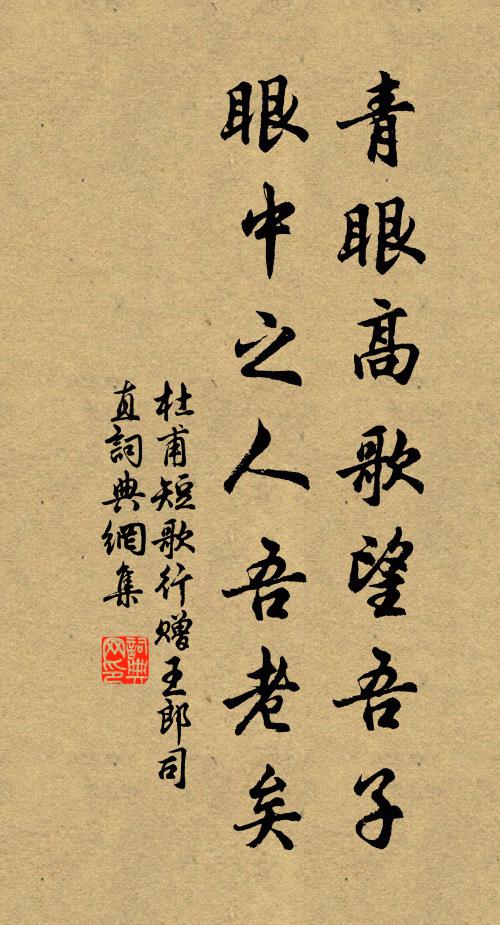 青眼高歌望吾子
眼中之人吾老矣
杜甫短歌行赠王郎司
直詞典網集
詞典
网印